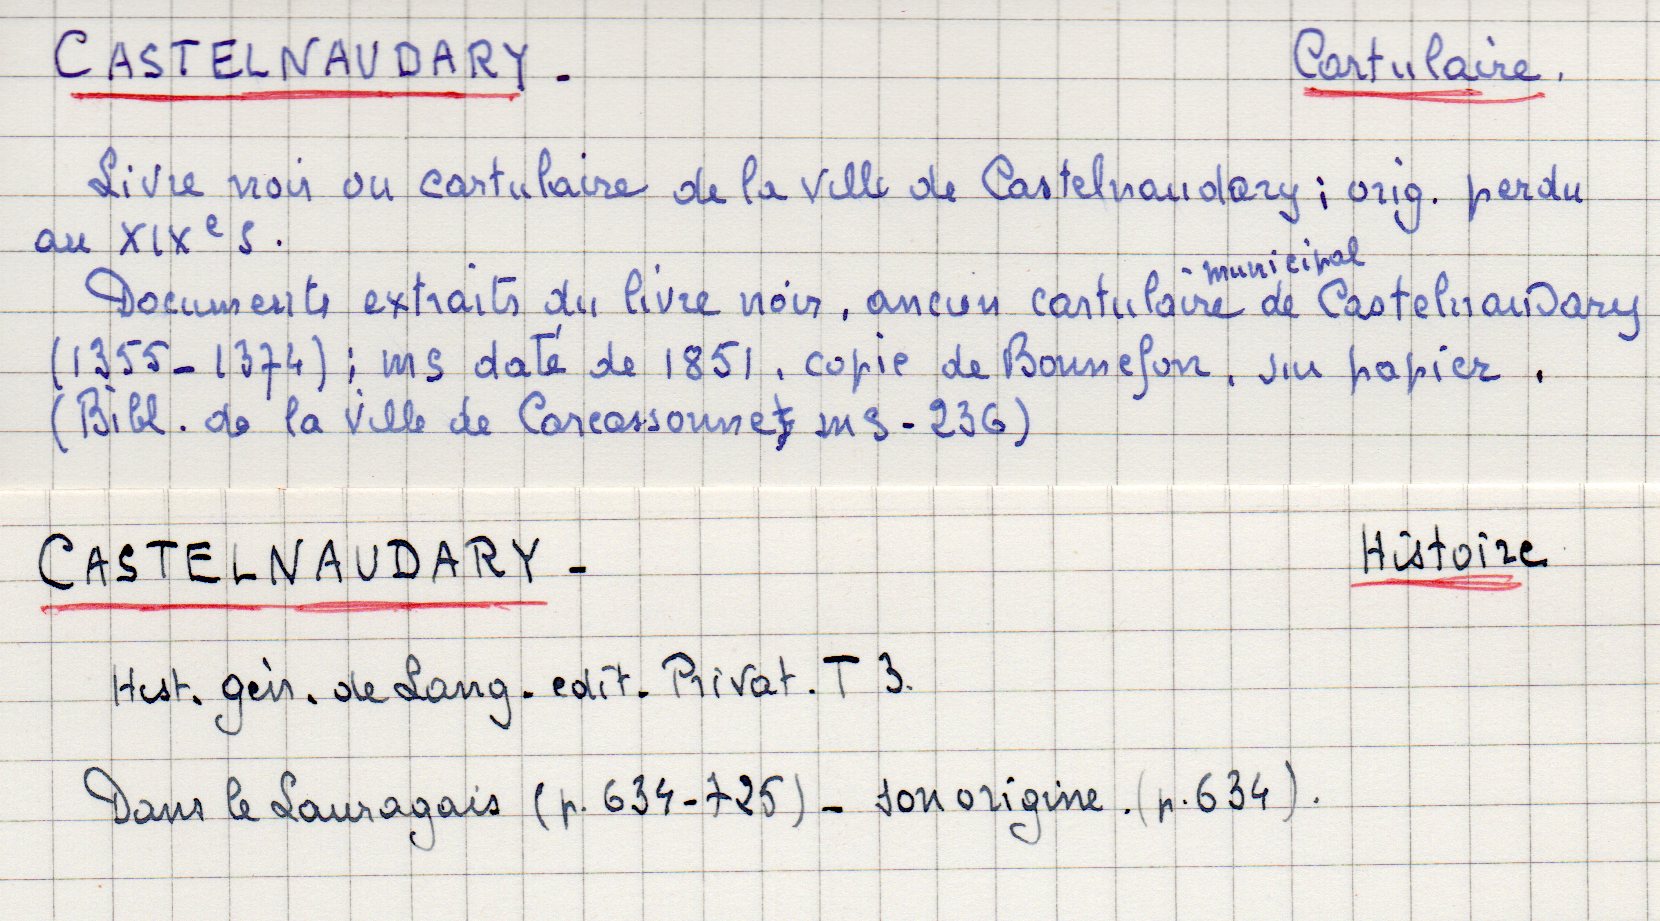 CASTELNAUDARY - Cartulaire.
Livre noir ou cartulaire de la ville de Castelnaudary ; orig. perdu
au XIXe s.
municipal
Documents extraits du livre noir, ancien cartulaire de Castelnaudary
(1355-1374) ; ms daté de 1851, copie de Bonnefon, sur papier.
(Bibl. de la ville de Carcassonne, ms - 236)
CASTELNAUDARY - Histoire
Hist. gén. de Lang. edit. Privat. T 3.
Dans le Lauragais (p. 634-725) - son origine. (p. 634).